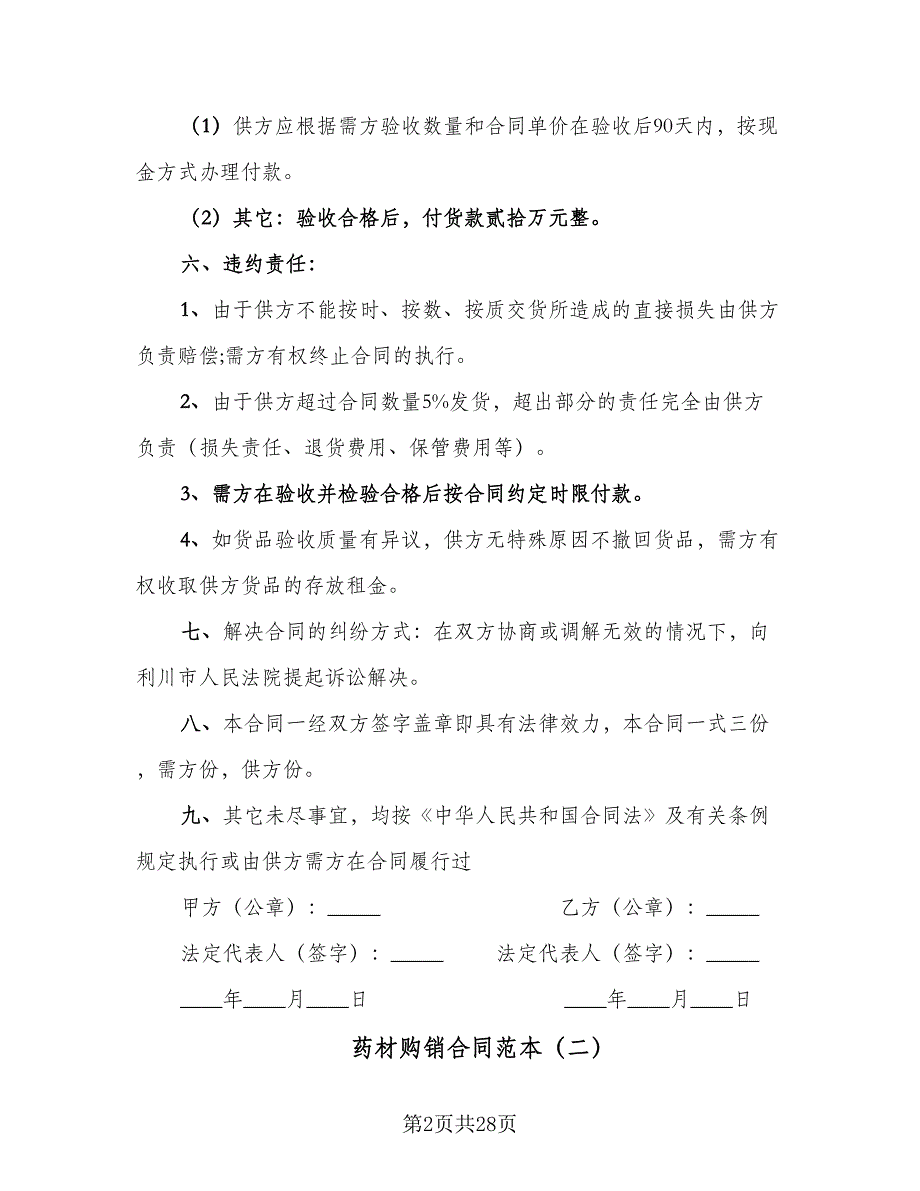 （1）供方应根据需方验收数量和合同单价在验收后90天内，按现
金方式办理付款。
（2）其它：验收合格后，付货款贰拾万元整。
六、违约责任：
1、由于供方不能按时、按数、按质交货所造成的直接损失由供方
负责赔偿;需方有权终止合同的执行。
2、由于供方超过合同数量5%发货，超出部分的责任完全由供方
负责（损失责任、退货费用、保管费用等）。
3、需方在验收并检验合格后按合同约定时限付款。
4、如货品验收质量有异议，供方无特殊原因不撤回货品，需方有
权收取供方货品的存放租金。
七、解决合同的纠纷方式：在双方协商或调解无效的情况下，向
利川市人民法院提起诉讼解决。
八、本合同一经双方签字盖章即具有法律效力，本合同一式三份
，需方份，供方份。
九、其它未尽事宜，均按《中华人民共和国合同法》及有关条例
规定执行或由供方需方在合同履行过
甲方（公章）：_____ 乙方（公章）：_____
法定代表人（签字）：_____ 法定代表人（签字）：_____
____年____月____日 ____年____月____日
药材购销合同范本（二）
第2页共28页